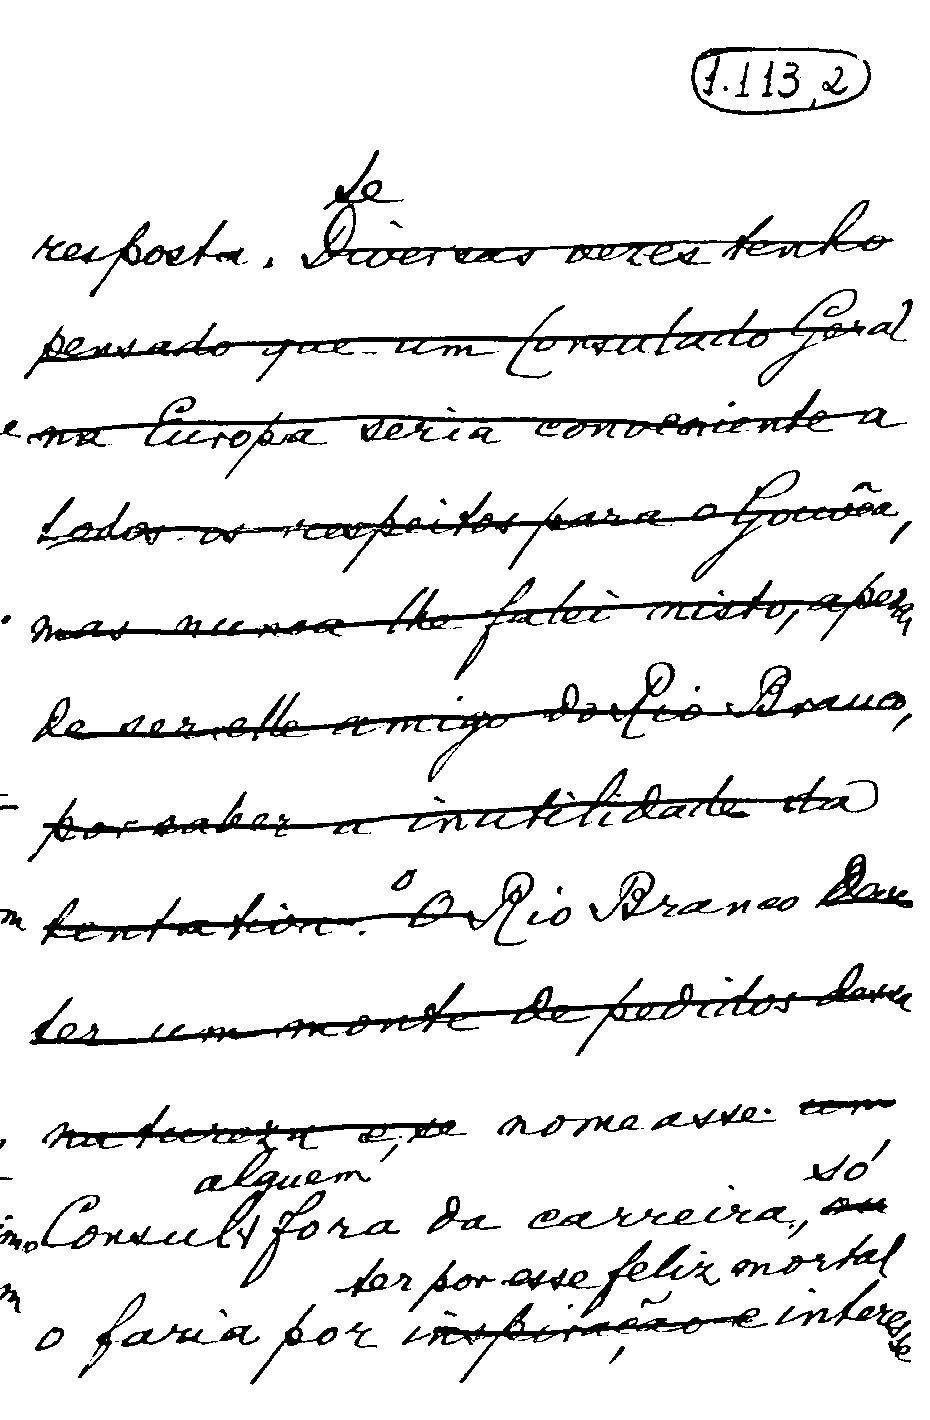 1.113,2
se
resposta. Diversas vezes tenho
pensado que um Consulado Geral
na Europa seria conveniente a
todos os respeitos para o Gouvêa,
mas nunca lhe falei nisto, apezar
de ser elle amigo do Rio Branco,
por saber a inutilidade da
tentativa. O Rio Branco deve
o
ter um monte de pedidos dessa
natureza e, se nomeasse um
alguem só
Consul fora da carreira, ou
ter por esse feliz mortal
o faria por inspiração e interesse